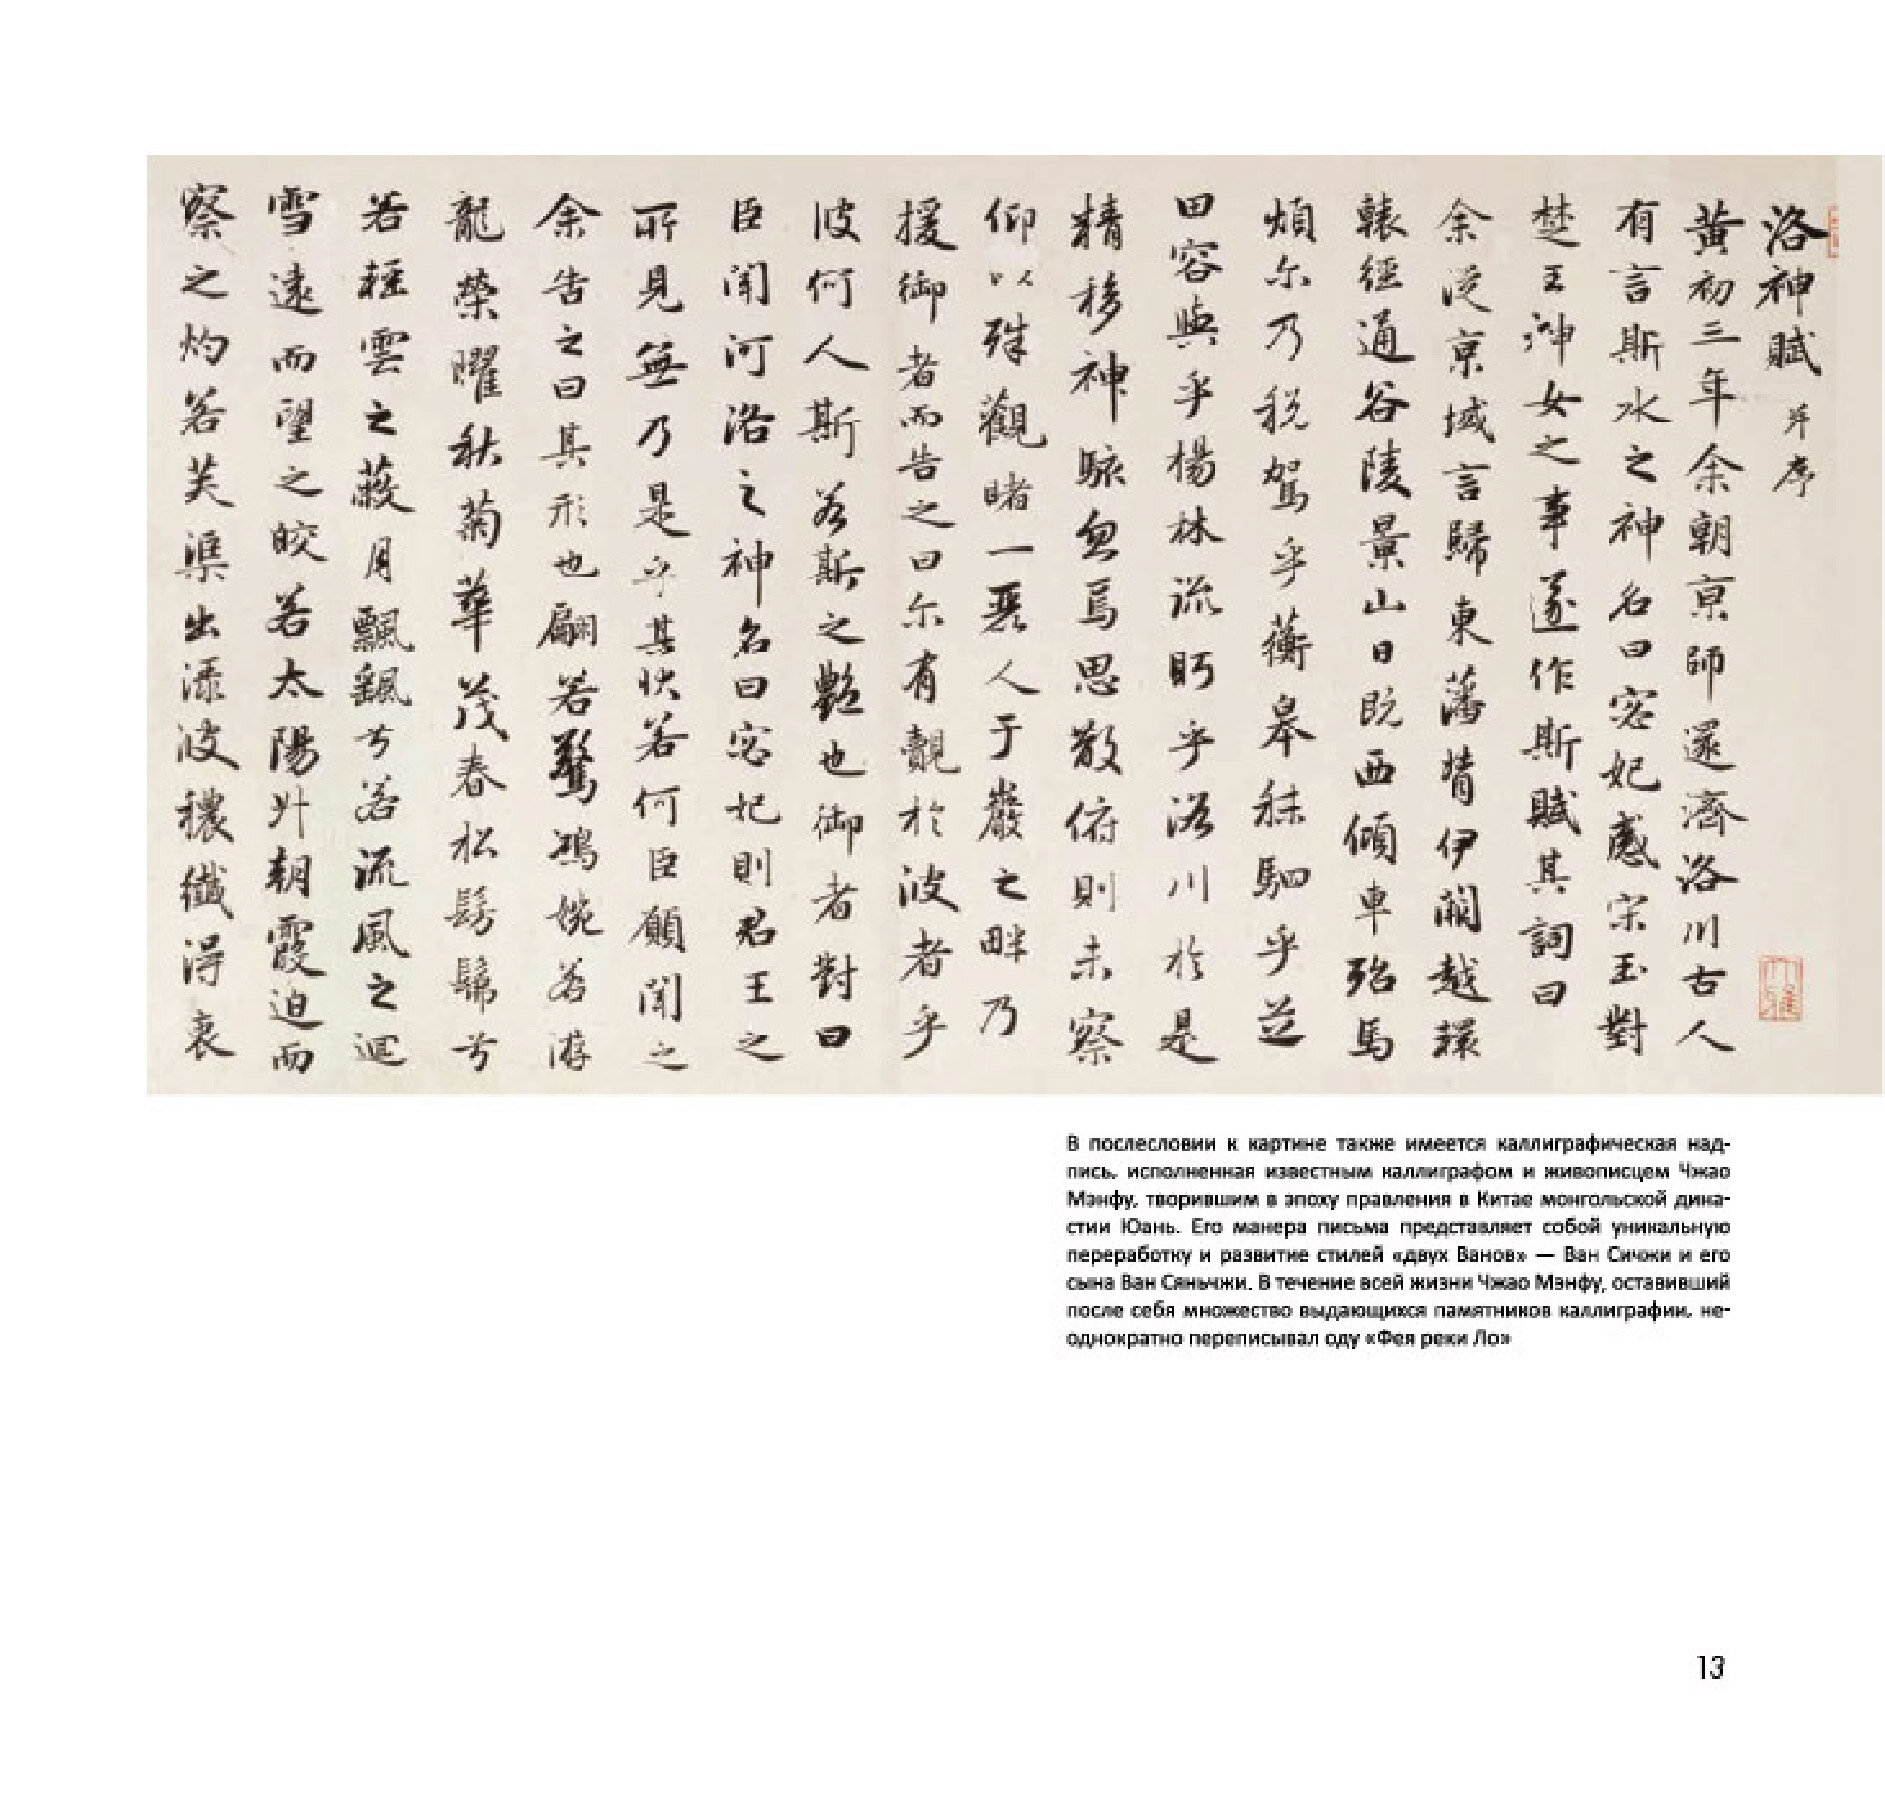 洛神賦 并序
黃初三年余朝京師還濟洛川古人
有言斯水之神名曰宓妃感宋玉對
楚王神女之事遂作斯賦其詞曰
余從京域言歸東藩背伊闕越轘
轅經通谷陵景山日既西傾車殆馬
煩尒乃稅駕乎蘅皋秣駟乎芝
田容與乎楊林流眄乎洛川於是
精移神駭忽焉思散俯則未察
仰以殊觀睹一麗人于巖之畔乃
援御者而告之曰尒有覿於彼者乎
彼何人斯若斯之豔也御者對曰
臣聞河洛之神名曰宓妃則君王之
所見無乃是乎其狀若何臣願聞之
余告之曰其形也翩若驚鴻婉若游
龍榮曜秋菊華茂春松髣髴兮
若輕雲之蔽月飄颻兮若流風之迴
雪遠而望之皎若太陽升朝霞迫而
察之灼若芙蕖出淥波穠纖得衷
В послесловии к картине также имеется каллиграфическая над-
пись, исполненная известным каллиграфом и живописцем Чжао
Мэнфу, творившим в эпоху правления в Китае монгольской дина-
стии Юань. Его манера письма представляет собой уникальную
переработку и развитие стилей «двух Ванов» — Ван Сичжи и его
сына Ван Сяньчжи. В течение всей жизни Чжао Мэнфу, оставивший
после себя множество выдающихся памятников каллиграфии, не-
однократно переписывал оду «Фея реки Ло»
13